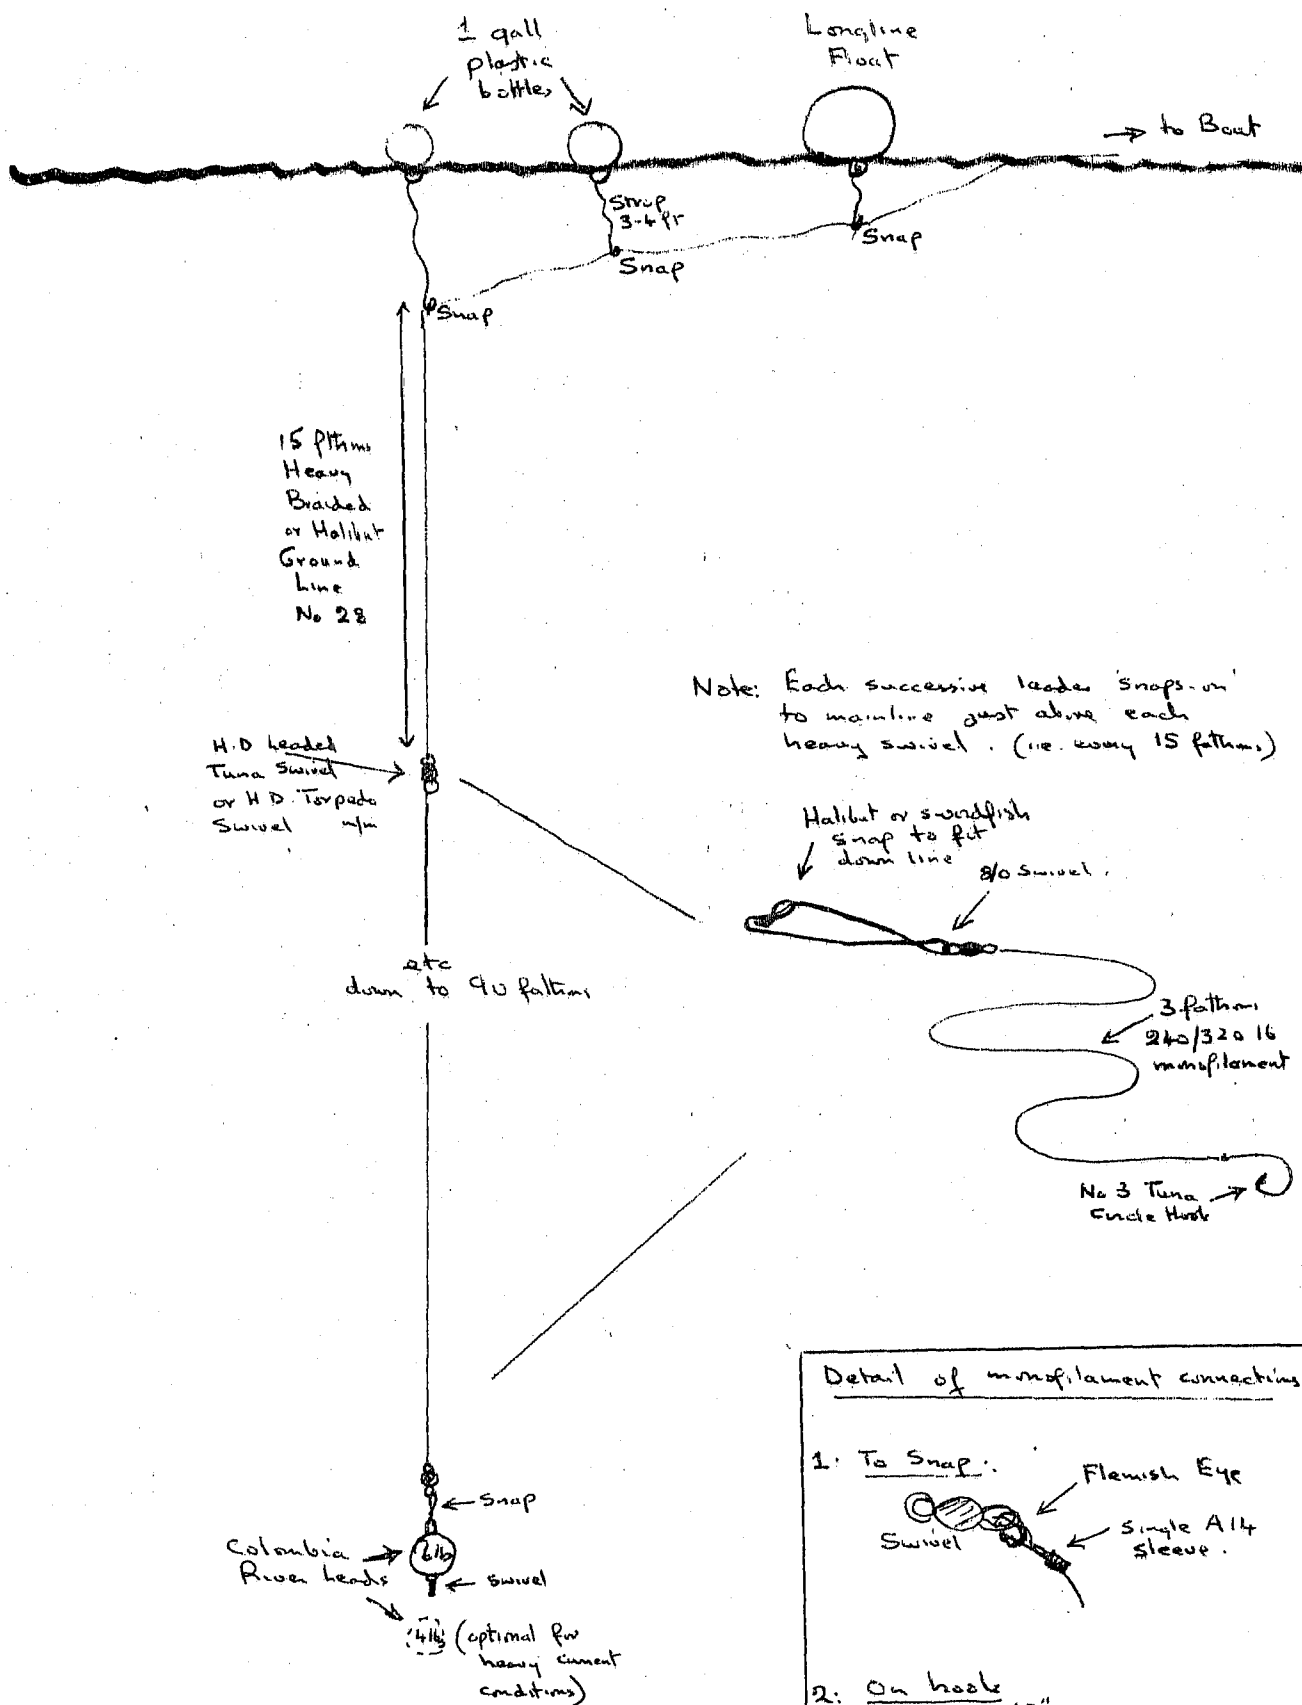 1 gall
plastic
bottles
Longline
Float
→ to Boat
Strop
3-4 ft
Snap
Snap
Snap
15 fthms
Heavy
Braided
or Halibut
Ground
Line
No 28
Note: Each successive leader 'snaps-on'
to mainline just above each
heavy swivel. (i.e. every 15 fathoms)
H.D Leaded
Tuna Swivel
or H.D. Torpedo
Swivel
Halibut or swordfish
snap to fit
down line
8/0 Swivel.
etc
down to 90 fathoms
3 fathoms
240/320 lb
monofilament
No 3 Tuna
Circle Hook
Snap
Colombia
River leads
6lb
swivel
4lb (optional for
heavy current
conditions)
Detail of monofilament connections
1: To Snap:
Flemish Eye
Swivel
Single A14
Sleeve.
2: On hook